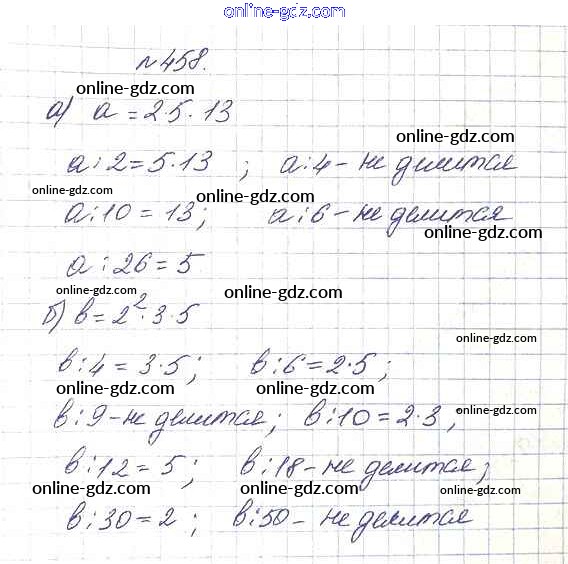 online-gdz.com
№458.
online-gdz.com
а) a = 2·5·13
online-gdz.com
a:2 = 5·13 ; a:4 - не делится
online-gdz.com online-gdz.com
a:10 = 13; a:6 - не делится
online-gdz.com
a:26 = 5
online-gdz.com
б) b = 2²·3·5
online-gdz.com
online-gdz.com
b:4 = 3·5; b:6 = 2·5;
online-gdz.com online-gdz.com
b:9 - не делится; b:10 = 2·3;
online-gdz.com
online-gdz.com
b:12 = 5; b:18 - не делится;
online-gdz.com online-gdz.com
online-gdz.com
b:30 = 2; b:50 - не делится